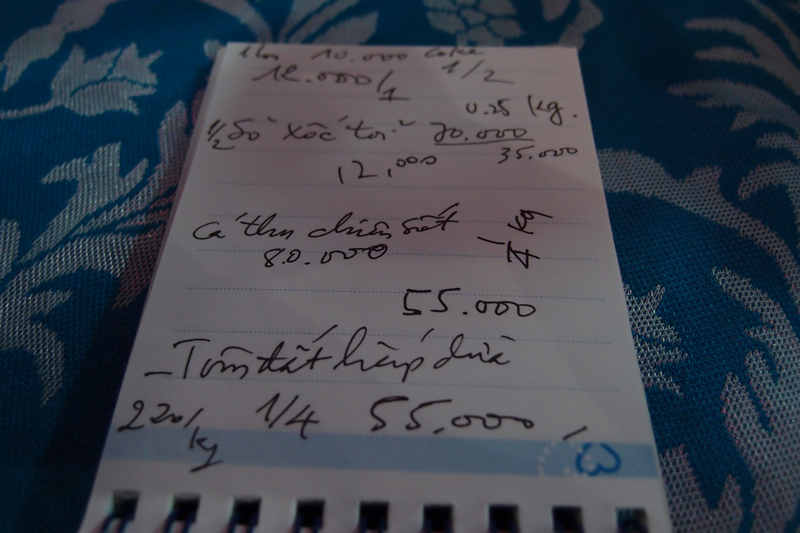 10.000 coke
12.000/1 1/2
0.25 kg.
1/2 Sò xốc tỏi 70.000
12,000 35.000
Cá thu chiên sốt 1/4 kg
80.000
55.000
- Tôm đất hấp dừa
220/kg 1/4 55.000